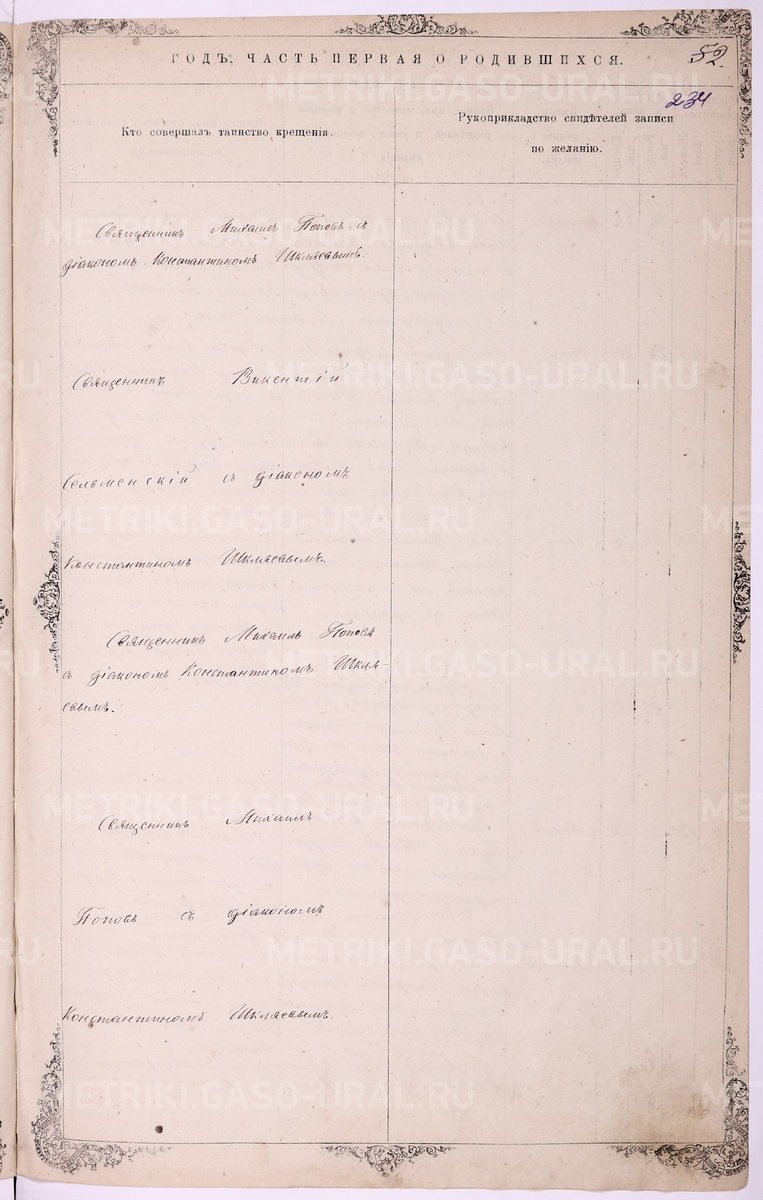 ГОДЪ, ЧАСТЬ ПЕРВАЯ О РОДИВШИХСЯ.
52.
234
Кто совершалъ таинство крещенія.
Рукоприкладство свидѣтелей записи
по желанію.
Священникъ Михаилъ Поповъ съ
діакономъ Константиномъ
Священникъ Викентій
Сельменскій съ діакономъ
Константиномъ
Священникъ Михаилъ Поповъ
съ діакономъ Константиномъ
Священникъ Михаилъ
Поповъ съ діакономъ
Константиномъ
METRIKI.GASO-URAL.RU